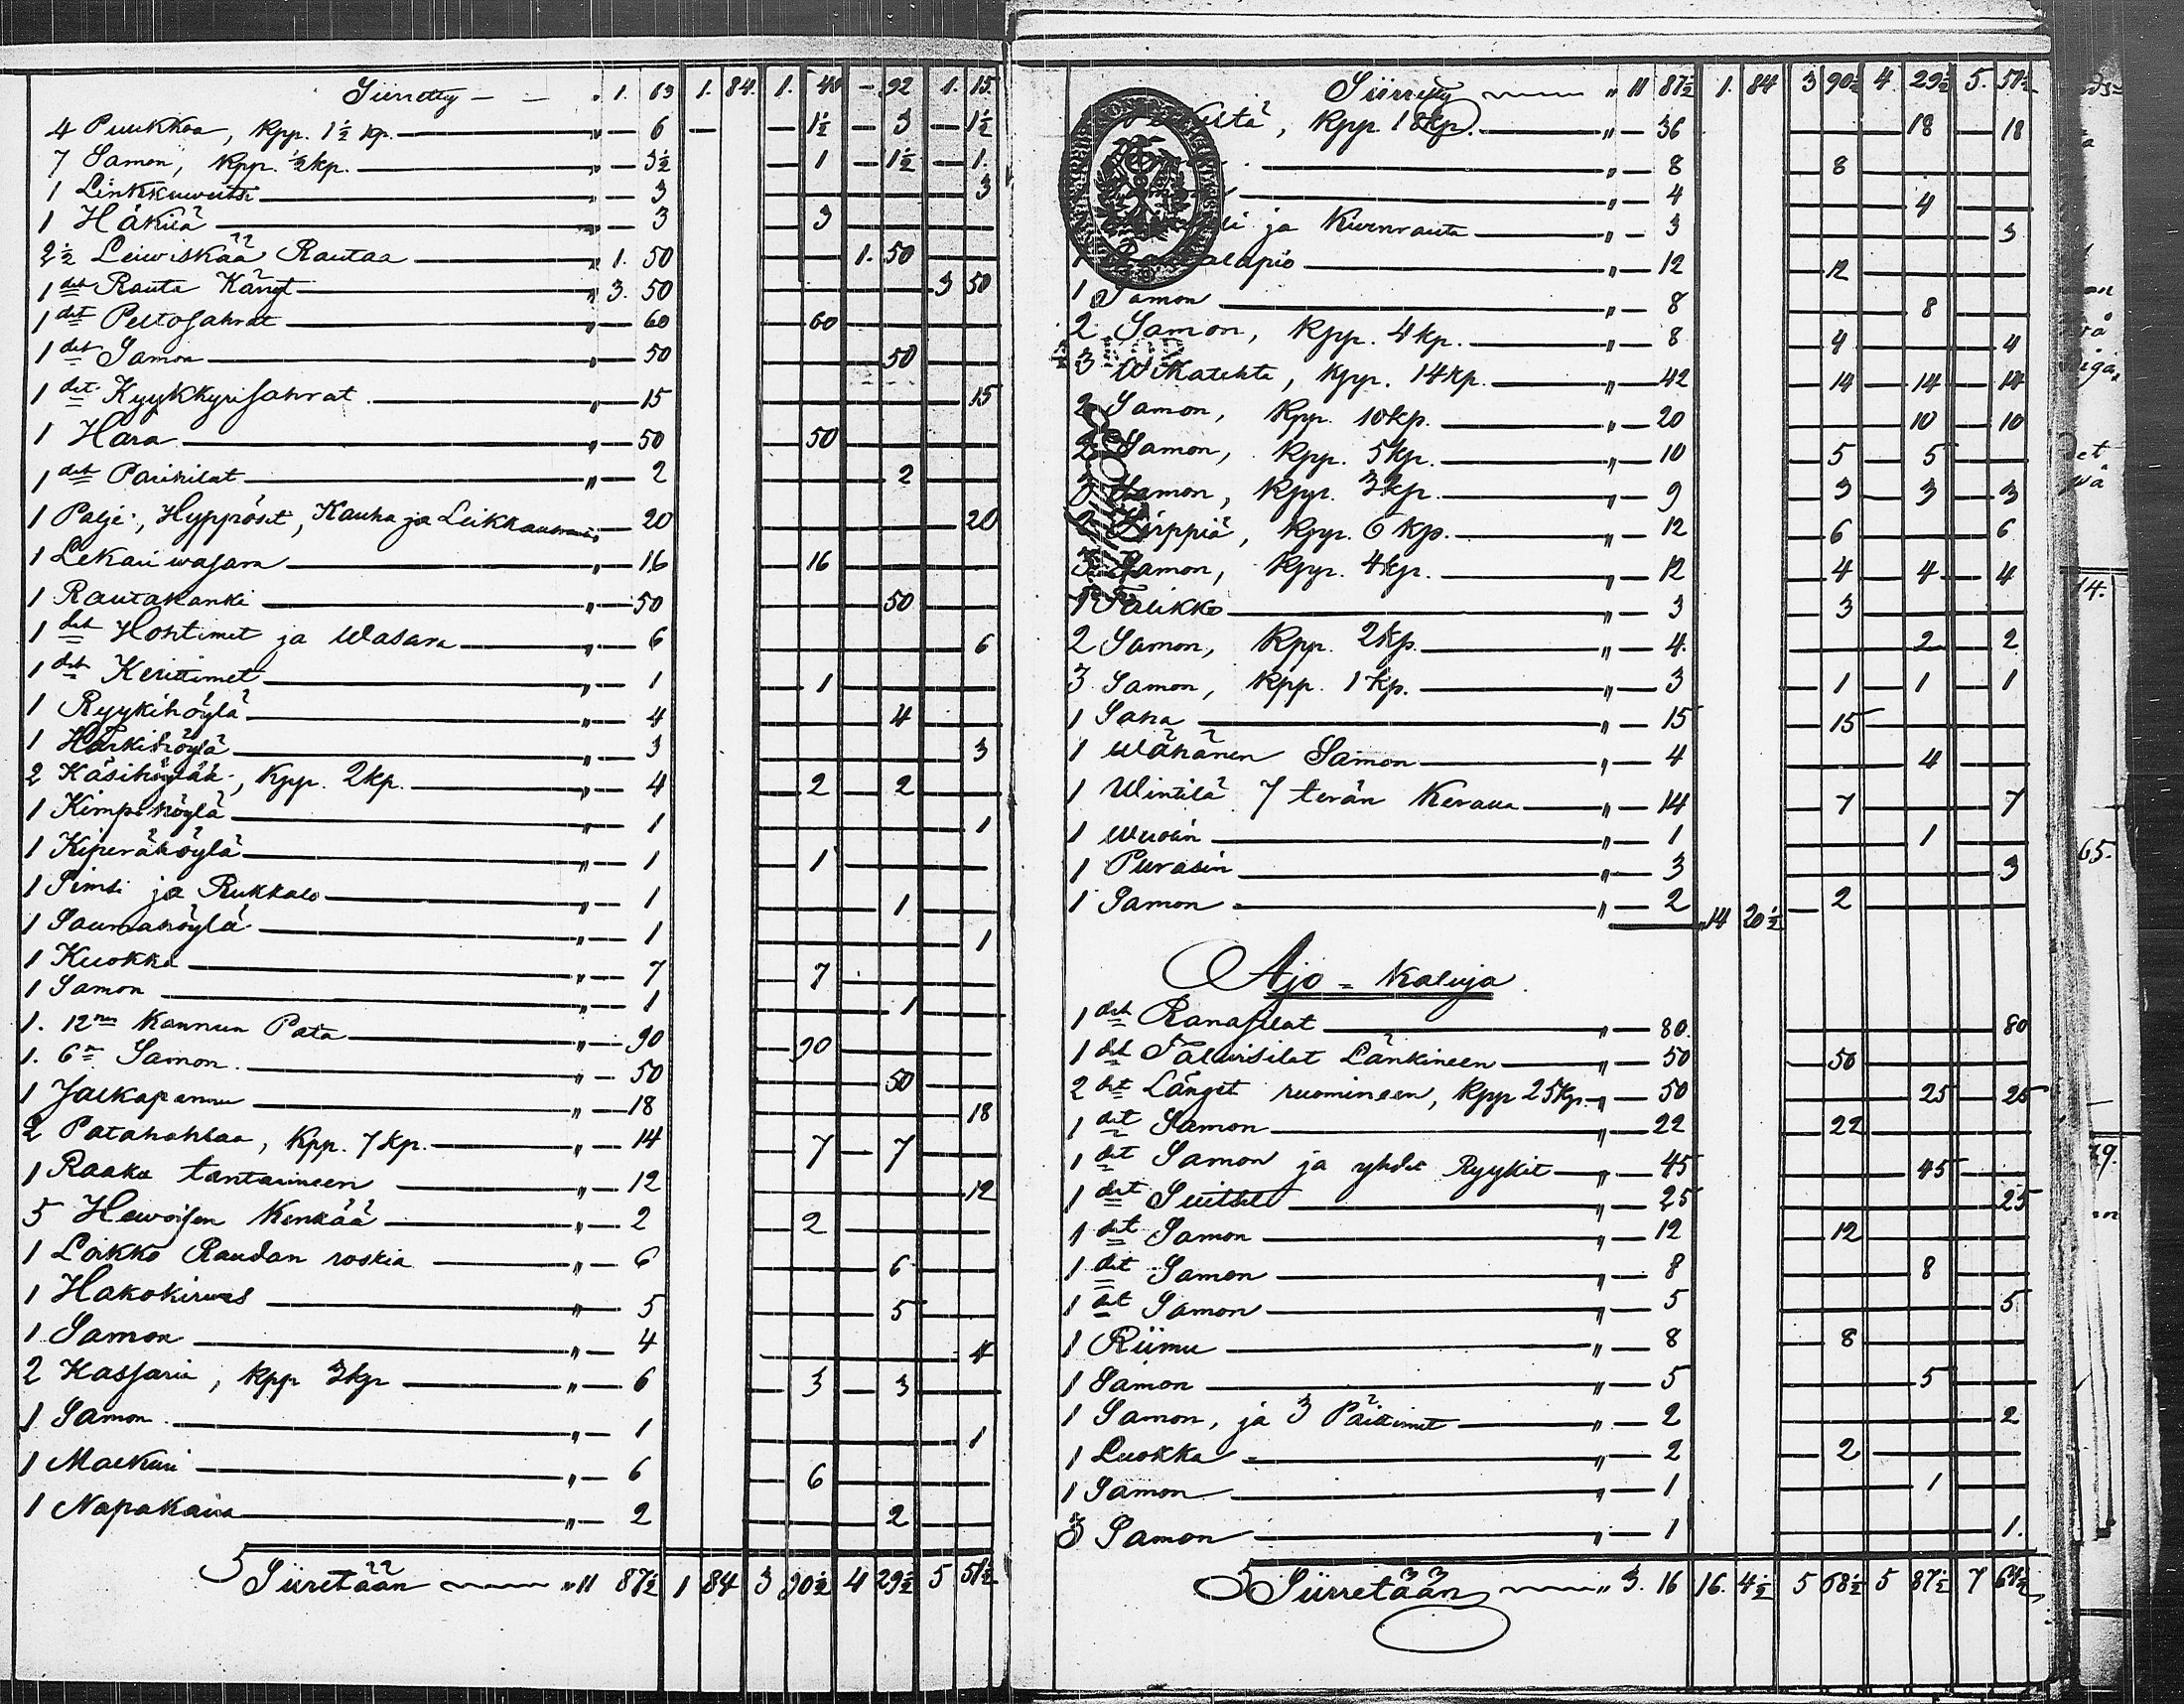 Siirretty — — " 1. 63 1. 84. 1. 40 — 92 1. 15.
4 Puukkoa, kpp. 1½ kp. — " — 6 — 1½ — 3 — 1½
7 Samon, kpp. ½ kp. — " — 3½ — 1 — 1½ — 1.
1 Linkkuweitsi — " — 3 3
1 Häkilä — " — 3 3
2½ Leiwiskää Rautaa — " 1. 50 1. 50
1 det Rauta Kängt — " 3. 50 3 50
1 det Peltosahrat — " — 60 60
1 det Samon — " — 50 50
1 det Kyykkyrisahrat — " — 15 15
1 Hara — " — 50 50
1 det Parihilat — " — 2 2
1 Palje, Hyppöset, Kauha ja — 20 20
1 Lekari wasara — " — 16 16
1 Rautakanki — " — 50 50
1 det Hohtimet ja Wasara — " — 6 6
1 det Keritimet — " — 1 1
1 Ryykihöylä — " — 4 4
1 Härkihöylä — " — 3 3
2 Käsihöylää, kpp. 2 kp. — " — 4 2 — 2
1 Kimpihöylä — " — 1 1
1 Kiperähöylä — " — 1 1
1 Simsi ja Rukkalo — " — 1 1
1 Saumahöylä — " — 1 1
1 Kuokka — " — 7 7
1 Samon — " — 1 1
1. 12 Kannun Pata — " — 90 90
1. 6 Samon — " — 50 50
1 Jalkapannu — " — 18 18
2 Patahahlaa, kpp. 7 kp. — " — 14 7 — 7
1 Raaka tantarineen — " — 12 12
5 Hewoisen Kenkää — " — 2 2
1 Loikko Raudan roskia — " — 6 6
1 Hakokirwes — " — 5 5
1 Samon — " — 4 4
2 Kassaria, kpp 3 kp — " — 6 3 — 3
1 Samon — " — 1 1
1 — " — 6 6
1 Napakaira — " — 2 2
Siiretään — " 11 87½ 1 84 3 90½ 4 29½ 5 51½
Siirretty — " 11 87½ 1. 84 3 90½ 4. 29½ 5. 51½
kpp 18 kp. — " — 36 18 — 18
— " — 8 8
— " — 4 4
ja Kiwenrauta — " — 3 3
1 — " — 12 12
1 Samon — " — 8 8
2 Samon, kpp. 4 kp. — " — 8 4 4
3 Wikatehta, kpp. 14 kp. — " — 42 14 — 14 — 14
2 Samon, kpp. 10 kp. — " — 20 10 — 10
2 Samon, kpp. 5 kp. — " — 10 5 — 5
3 Samon, kpp. 3 kp. — " — 9 3 — 3 — 3
2 Sirppiä, kpp. 6 kp. — " — 12 6 6
3 Samon, kpp. 4 kp. — " — 12 4 — 4 — 4
1 Talikko — " — 3 3
2 Samon, kpp. 2 kp. — " — 4. 2 — 2
3 Samon, kpp. 1 kp. — " — 3 1 — 1 — 1
1 Saha — " — 15 15
1 Wähänen Samon — " — 4 4
1 Wintilä 7 terän Keraua — " — 14 7 7
1 — " — 1 1
1 Purasin — " — 3 3
1 Samon — " — 2 14 20½ 2
Ajo = Kaluja
1 det Ranasilat — " — 80. 80
1 det Talwisilat Länkineen — " — 50 50
2 det Länget ruomineen, kpp 25 kp. — " — 50 25 — 25
1 det Samon — " — 22 22
1 det Samon ja yhdet Ryykit — " — 45 45
1 det Suitset — " — 25 25
1 det Samon — " — 12 12
1 det Samon — " — 8 8
1 det Samon — " — 5 5
1 Riimu — " — 8 8
1 Samon — " — 5 5
1 Samon, ja 3 Päitimet — " — 2 2
1 Luokka — " — 2 2
1 Samon — " — 1 1
3 Samon — " — 1 1.
Siirretään — " 3. 16 16. 4½ 5 68½ 5 87½ 7 64½